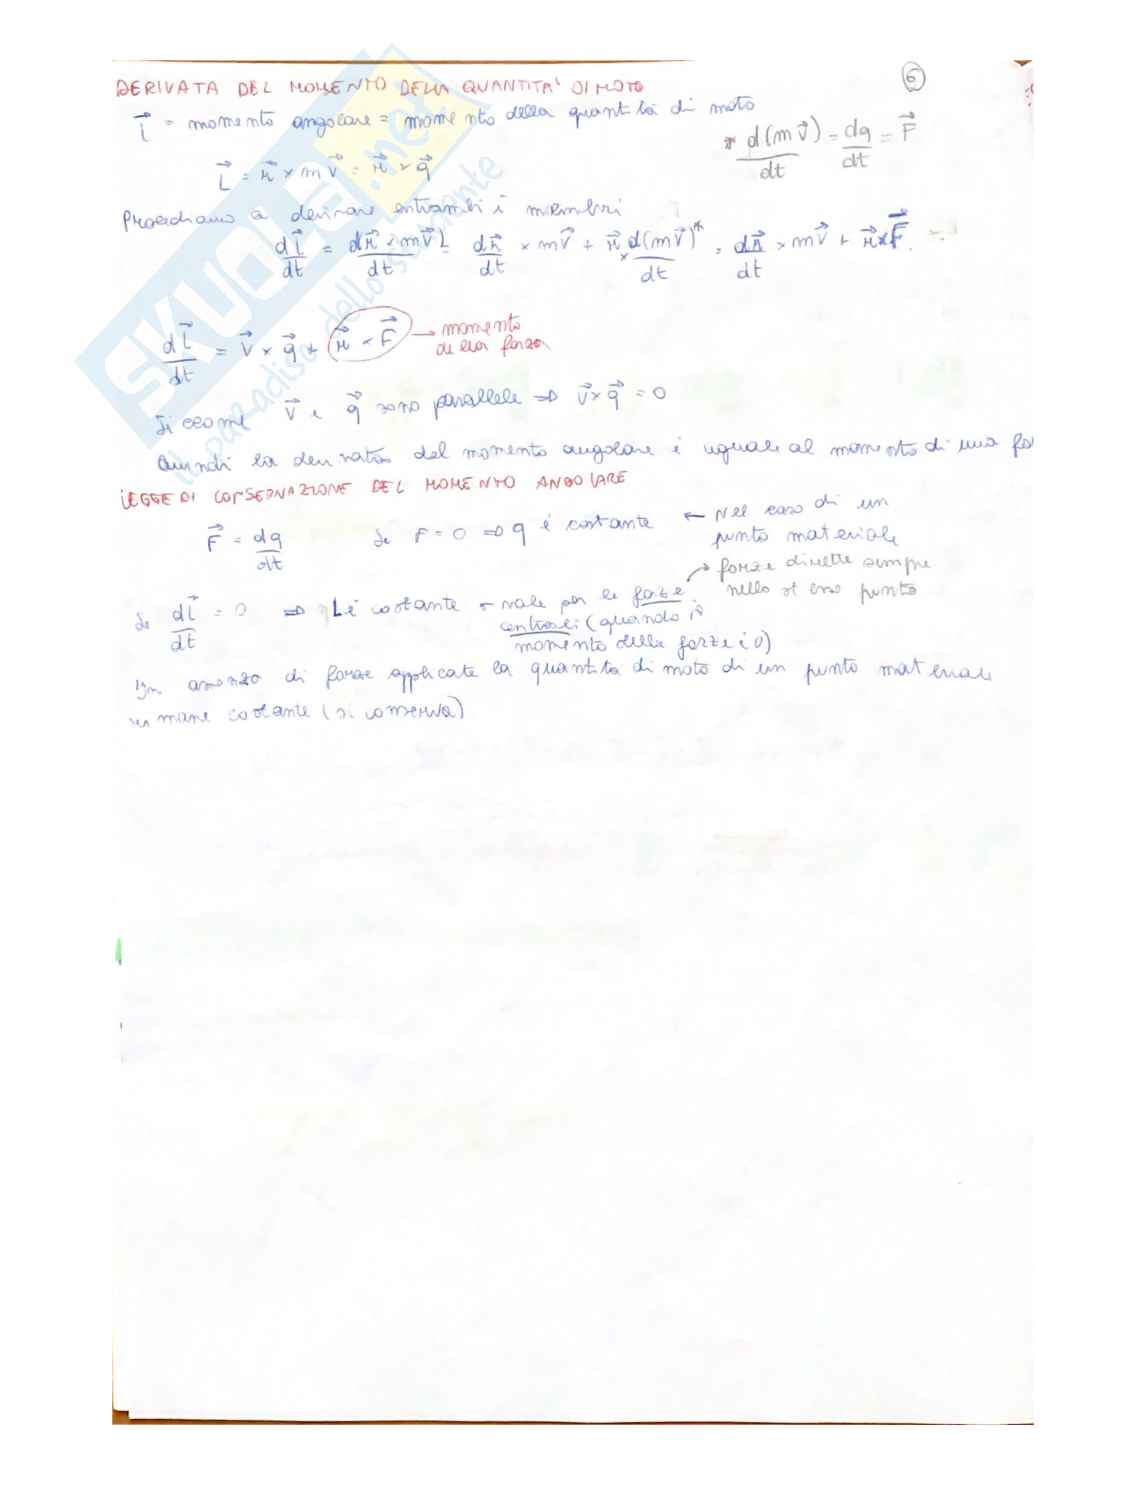 6
DERIVATA DEL MOMENTO DELLA QUANTITA' DI MOTO
L⃗ = momento angolare = momento della quantità di moto
* d(m v⃗)/dt = dq/dt = F⃗
L⃗ = r⃗ × m v⃗ = r⃗ × q⃗
Procediamo a derivare entrambi i membri
dL⃗/dt = dr⃗ × m v⃗/dt = dr⃗/dt × m v⃗ + r⃗ × d(m v⃗)*/dt = dr⃗/dt × m v⃗ + r⃗ × F⃗
dL⃗/dt = v⃗ × q⃗ + r⃗ × F⃗ → momento
della forza
Siccome v⃗ e q⃗ sono parallele ⇒ v⃗ × q⃗ = 0
Quindi la derivata del momento angolare è uguale al momento di una fo
LEGGE DI CONSERVAZIONE DEL MOMENTO ANGOLARE
F⃗ = dq/dt Se F = 0 ⇒ q è costante ← Nel caso di un
punto materiale
→ forze dirette sempre
nello stesso punto
Se dL⃗/dt = 0 ⇒ L è costante → vale per le forze
centrali (quando il
momento delle forze è 0)
In assenza di forze applicate la quantità di moto di un punto materiale
rimane costante (si conserva)
SKUOLA.net
il paradiso dello studente